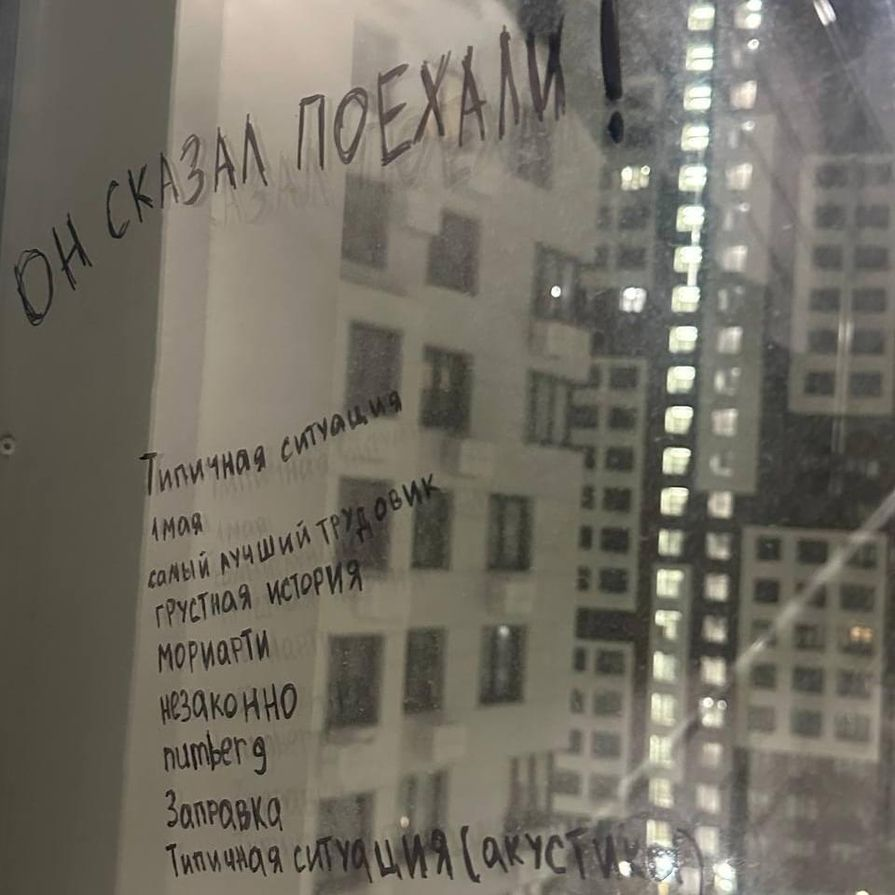 ОН СКАЗАЛ ПОЕХАЛИ!
Типичная ситуация
1 мая
самый лучший трудовик
грустная история
мориарти
незаконно
number 9
Заправка
Типичная ситуация (акустика)